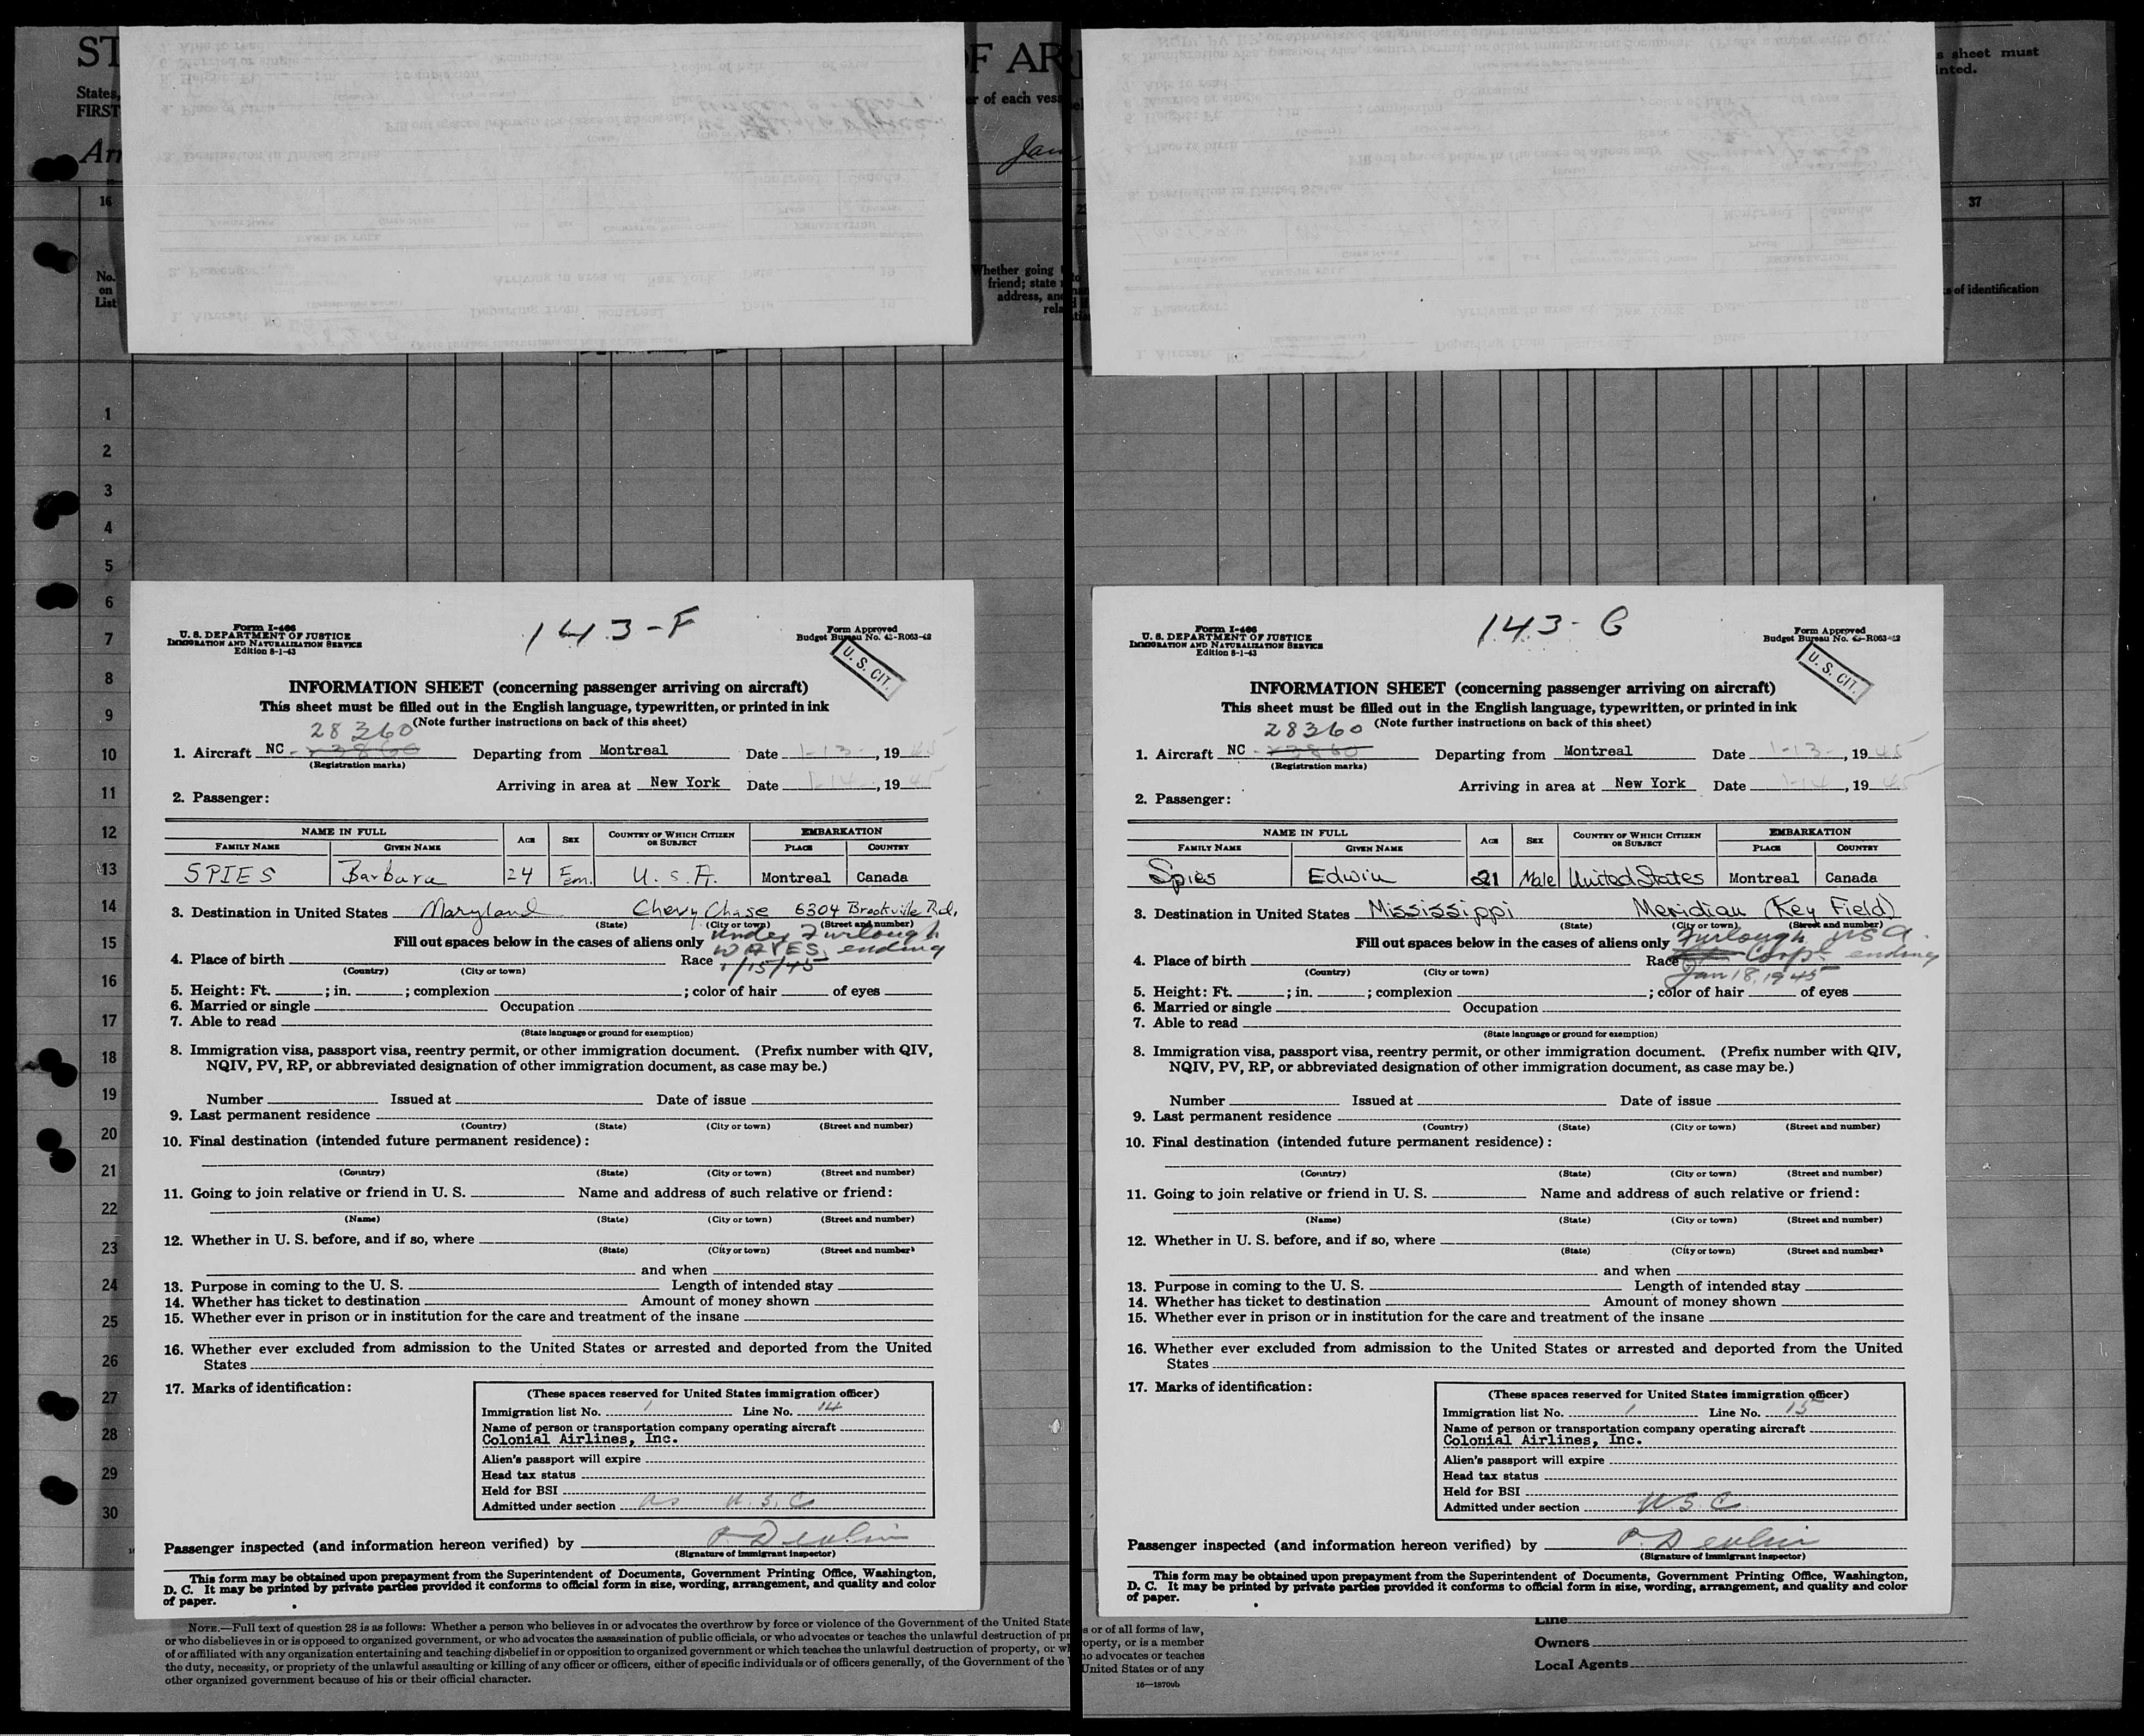 ST
OF AR
States,
FIRST
er of each vess
Arr
Jan
16
No.
on
List
Whether going
friend; state
address, and
rela
s sheet must
inted.
37
s of identification
1
2
3
4
5
6
7
8
9
10
11
12
13
14
15
16
17
18
19
20
21
22
23
24
25
26
27
28
29
30
Form I-466
U. S. DEPARTMENT OF JUSTICE
IMMIGRATION AND NATURALIZATION SERVICE
Edition 8-1-43
143-F
Form Approved
Budget Bureau No. 43-R063-42
U. S. CIT.
INFORMATION SHEET (concerning passenger arriving on aircraft)
This sheet must be filled out in the English language, typewritten, or printed in ink
28360 (Note further instructions on back of this sheet)
1. Aircraft NC - Departing from Montreal Date 1-13-, 1945
(Registration marks)
Arriving in area at New York Date 1-14, 1945
2. Passenger:
NAME IN FULL AGE SEX COUNTRY OF WHICH CITIZEN OR SUBJECT EMBARKATION
FAMILY NAME GIVEN NAME PLACE COUNTRY
SPIES Barbara 24 Fem. U.S.A. Montreal Canada
3. Destination in United States Maryland Chevy Chase 6304 Brookville Rd.
(State) (City or town) (Street and number)
Fill out spaces below in the cases of aliens only under Furlough
WAVES, ending
4. Place of birth Race 1/15/45
(Country) (City or town)
5. Height: Ft. ; in. ; complexion ; color of hair of eyes
6. Married or single Occupation
7. Able to read
(State language or ground for exemption)
8. Immigration visa, passport visa, reentry permit, or other immigration document. (Prefix number with QIV,
NQIV, PV, RP, or abbreviated designation of other immigration document, as case may be.)
Number Issued at Date of issue
9. Last permanent residence
(Country) (State) (City or town) (Street and number)
10. Final destination (intended future permanent residence):
(Country) (State) (City or town) (Street and number)
11. Going to join relative or friend in U. S. Name and address of such relative or friend:
(Name) (State) (City or town) (Street and number)
12. Whether in U. S. before, and if so, where
(State) (City or town) (Street and number)
and when
13. Purpose in coming to the U. S. Length of intended stay
14. Whether has ticket to destination Amount of money shown
15. Whether ever in prison or in institution for the care and treatment of the insane
16. Whether ever excluded from admission to the United States or arrested and deported from the United
States
17. Marks of identification:
(These spaces reserved for United States immigration officer)
Immigration list No. 1 Line No. 14
Name of person or transportation company operating aircraft
Colonial Airlines, Inc.
Alien's passport will expire
Head tax status
Held for BSI
Admitted under section as U.S.C
Passenger inspected (and information hereon verified) by P. Devlin
(Signature of immigrant inspector)
This form may be obtained upon prepayment from the Superintendent of Documents, Government Printing Office, Washington,
D. C. It may be printed by private parties provided it conforms to official form in size, wording, arrangement, and quality and color
of paper.
NOTE.—Full text of question 28 is as follows: Whether a person who believes in or advocates the overthrow by force or violence of the Government of the United State
or who disbelieves in or is opposed to organized government, or who advocates the assassination of public officials, or who advocates or teaches the unlawful destruction of pr
of or affiliated with any organization entertaining and teaching disbelief in or opposition to organized government or which teaches the unlawful destruction of property, or wh
the duty, necessity, or propriety of the unlawful assaulting or killing of any officer or officers, either of specific individuals or of officers generally, of the Government of the
other organized government because of his or their official character.
Form I-466
U. S. DEPARTMENT OF JUSTICE
IMMIGRATION AND NATURALIZATION SERVICE
Edition 8-1-43
143-G
Form Approved
Budget Bureau No. 43-R063-42
U. S. CIT.
INFORMATION SHEET (concerning passenger arriving on aircraft)
This sheet must be filled out in the English language, typewritten, or printed in ink
28360 (Note further instructions on back of this sheet)
1. Aircraft NC - Departing from Montreal Date 1-13-, 1945
(Registration marks)
Arriving in area at New York Date 1-14, 1945
2. Passenger:
NAME IN FULL AGE SEX COUNTRY OF WHICH CITIZEN OR SUBJECT EMBARKATION
FAMILY NAME GIVEN NAME PLACE COUNTRY
Spies Edwin 21 Male United States Montreal Canada
3. Destination in United States Mississippi Meridian (Key Field)
(State) (City or town) (Street and number)
Fill out spaces below in the cases of aliens only Furlough USA
Corps ending
4. Place of birth Race Jan 18, 1945
(Country) (City or town)
5. Height: Ft. ; in. ; complexion ; color of hair of eyes
6. Married or single Occupation
7. Able to read
(State language or ground for exemption)
8. Immigration visa, passport visa, reentry permit, or other immigration document. (Prefix number with QIV,
NQIV, PV, RP, or abbreviated designation of other immigration document, as case may be.)
Number Issued at Date of issue
9. Last permanent residence
(Country) (State) (City or town) (Street and number)
10. Final destination (intended future permanent residence):
(Country) (State) (City or town) (Street and number)
11. Going to join relative or friend in U. S. Name and address of such relative or friend:
(Name) (State) (City or town) (Street and number)
12. Whether in U. S. before, and if so, where
(State) (City or town) (Street and number)
and when
13. Purpose in coming to the U. S. Length of intended stay
14. Whether has ticket to destination Amount of money shown
15. Whether ever in prison or in institution for the care and treatment of the insane
16. Whether ever excluded from admission to the United States or arrested and deported from the United
States
17. Marks of identification:
(These spaces reserved for United States immigration officer)
Immigration list No. 1 Line No. 15
Name of person or transportation company operating aircraft
Colonial Airlines, Inc.
Alien's passport will expire
Head tax status
Held for BSI
Admitted under section U.S.C.
Passenger inspected (and information hereon verified) by P. Devlin
(Signature of immigrant inspector)
This form may be obtained upon prepayment from the Superintendent of Documents, Government Printing Office, Washington,
D. C. It may be printed by private parties provided it conforms to official form in size, wording, arrangement, and quality and color
of paper.
s or of all forms of law,
operty, or is a member
ho advocates or teaches
United States or of any
16—18700b
Line
Owners
Local Agents